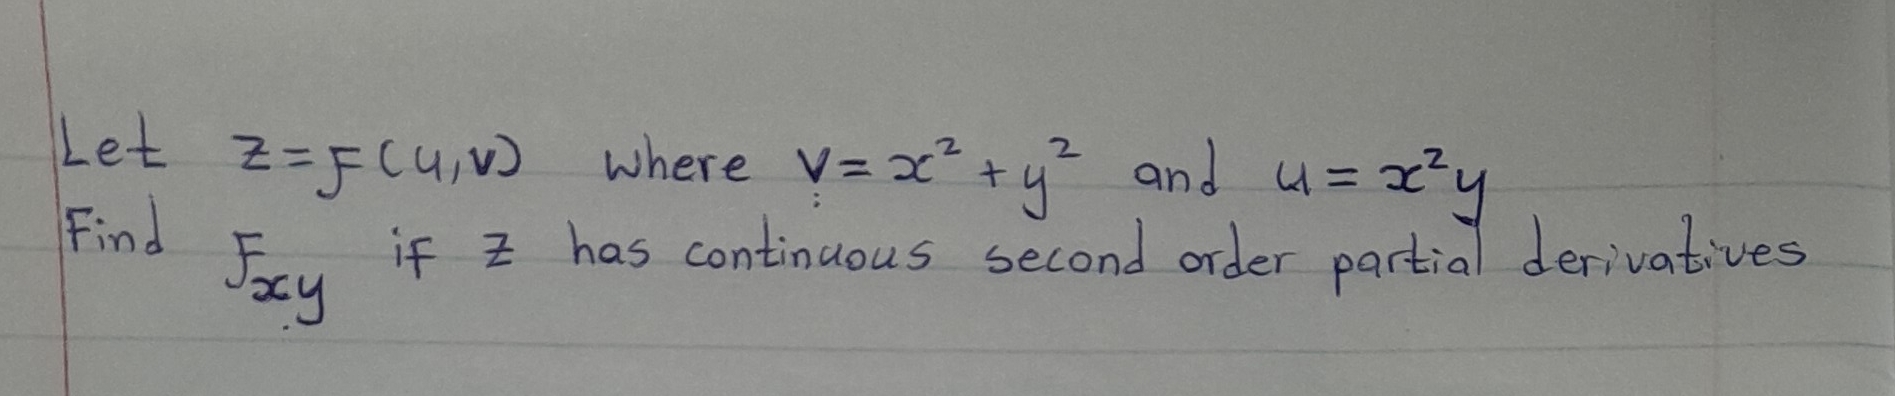 Let z=F(u,v) where v=x²+y² and u=x²y
Find Fxy if z has continuous second order partial derivatives